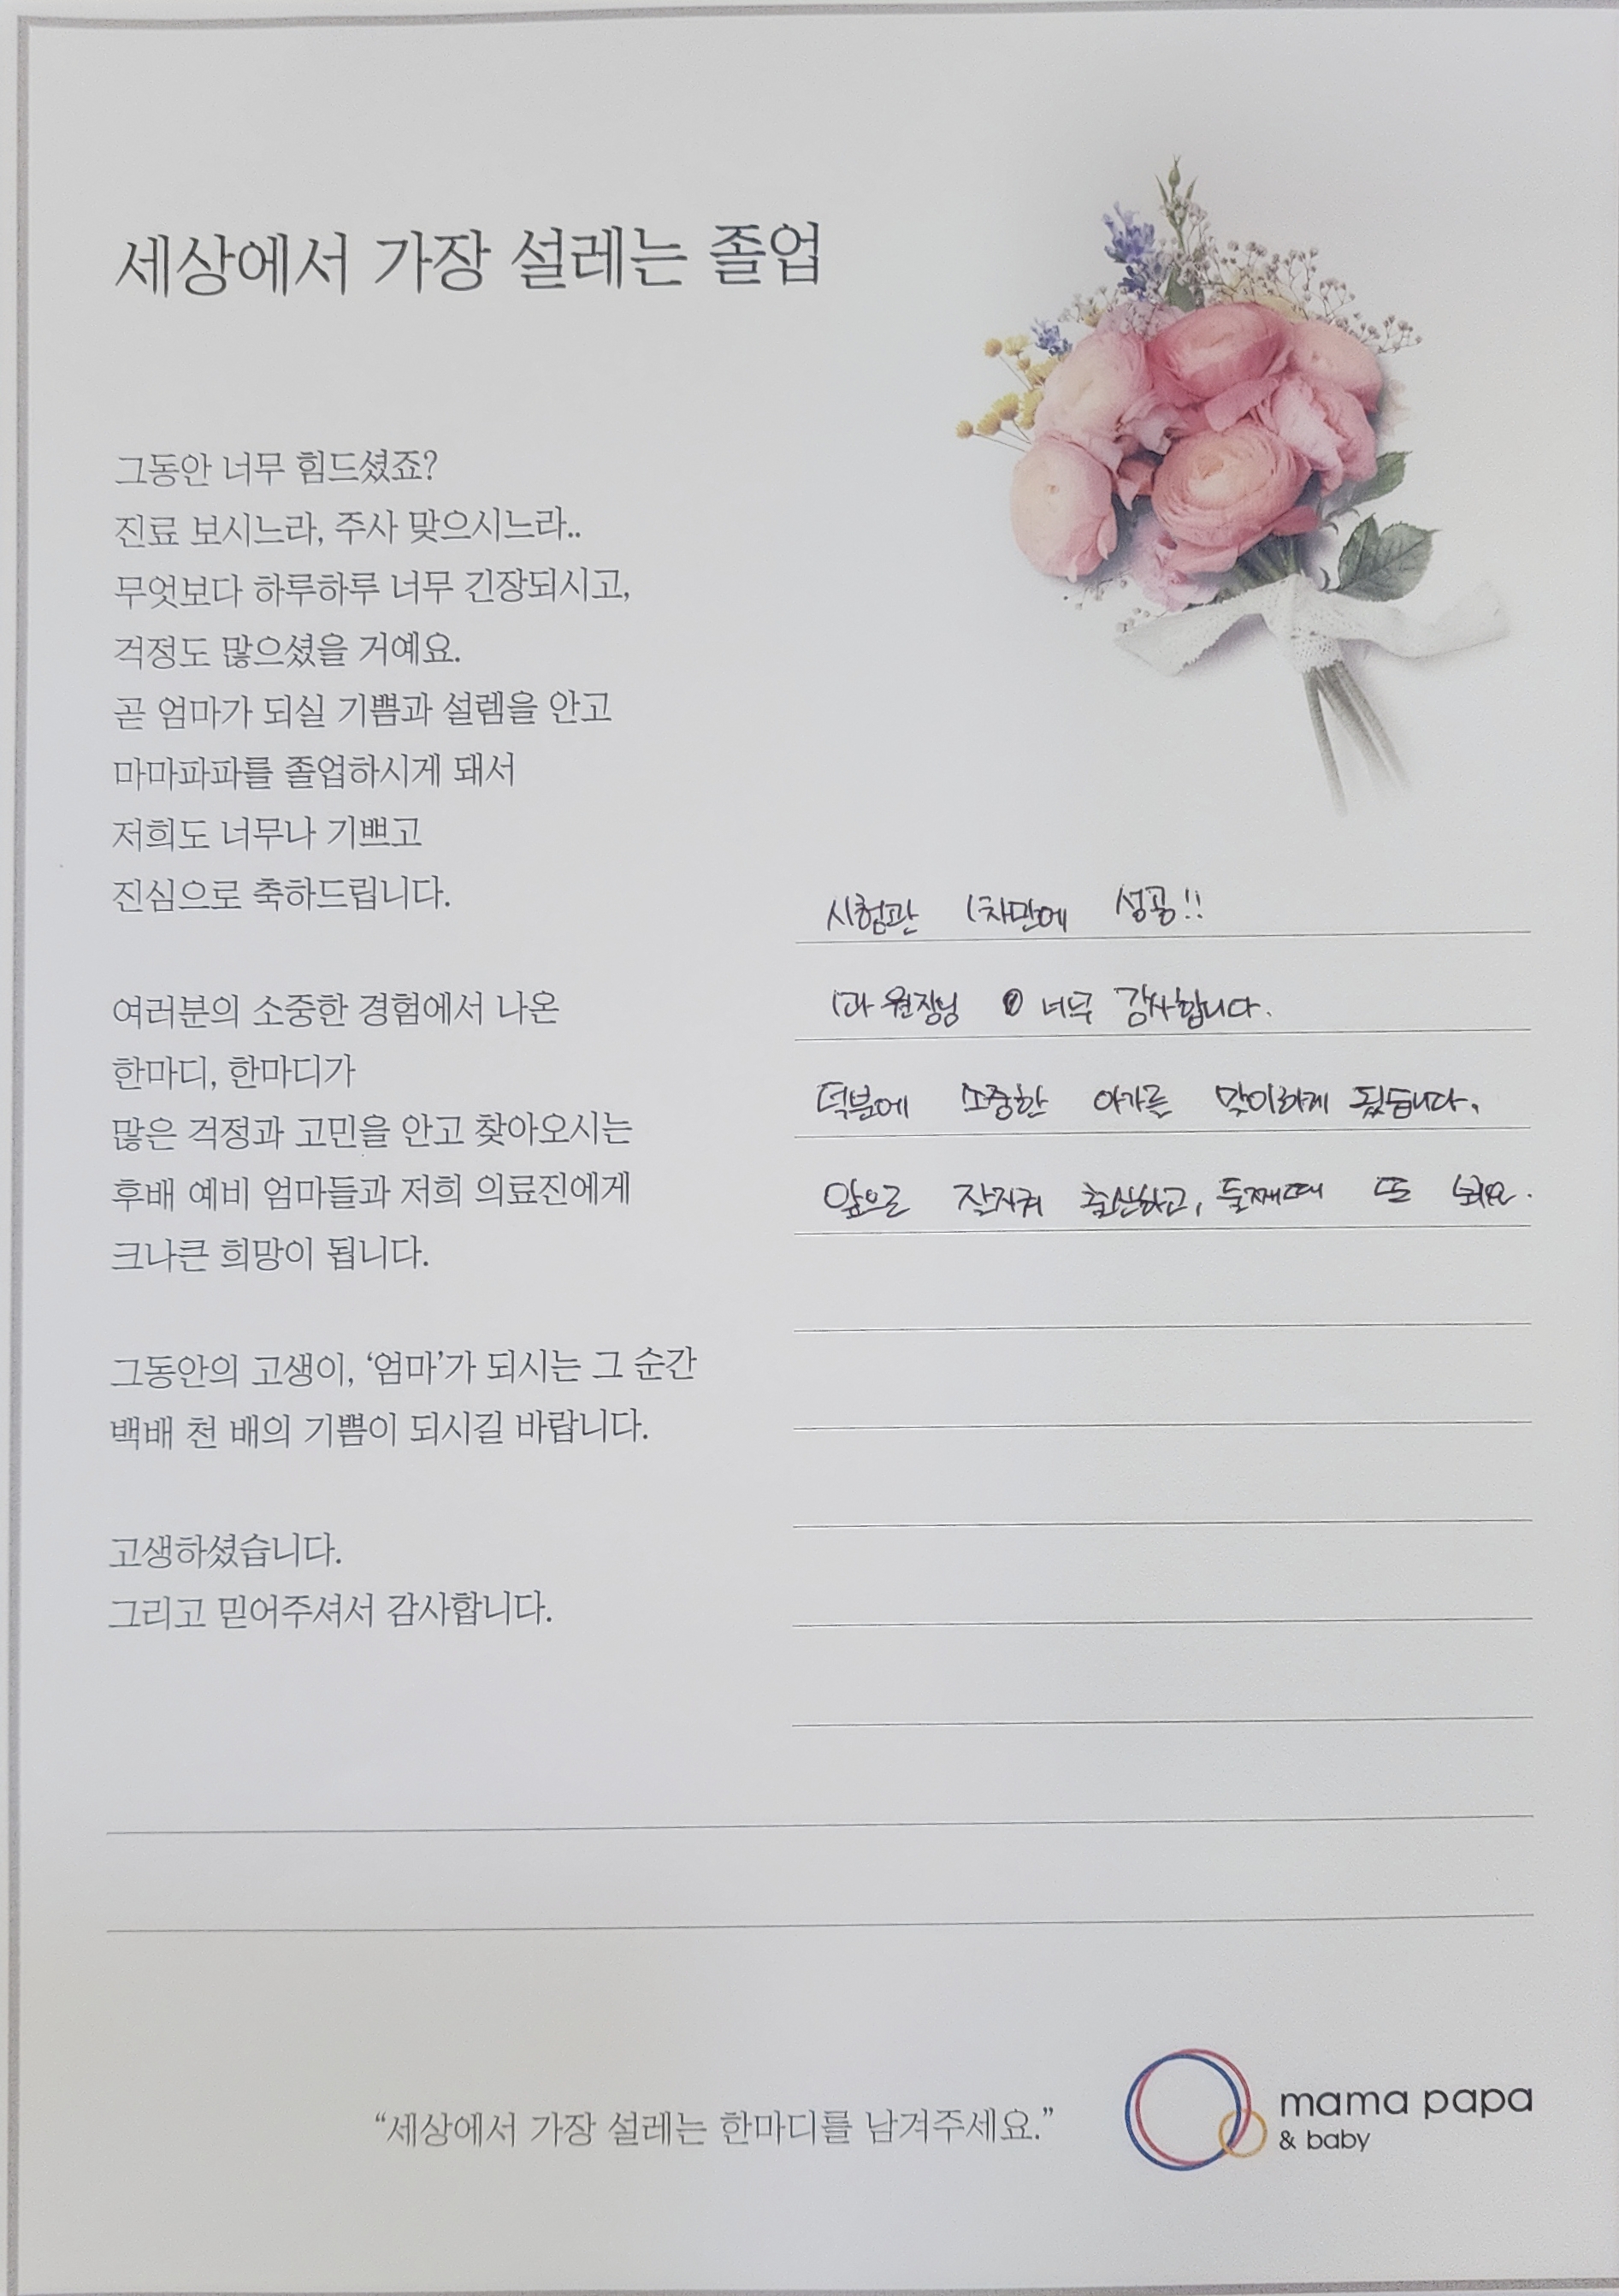 세상에서 가장 설레는 졸업
그동안 너무 힘드셨죠?
진료 보시느라, 주사 맞으시느라..
무엇보다 하루하루 너무 긴장되시고,
걱정도 많으셨을 거예요.
곧 엄마가 되실 기쁨과 설렘을 안고
마마파파를 졸업하시게 돼서
저희도 너무나 기쁘고
진심으로 축하드립니다.
여러분의 소중한 경험에서 나온
한마디, 한마디가
많은 걱정과 고민을 안고 찾아오시는
후배 예비 엄마들과 저희 의료진에게
크나큰 희망이 됩니다.
그동안의 고생이, ‘엄마’가 되시는 그 순간
백배 천 배의 기쁨이 되시길 바랍니다.
고생하셨습니다.
그리고 믿어주셔서 감사합니다.
시험관 1차만에 성공!!
1과 원장님 너무 감사합니다.
덕분에 소중한 아가를 맞이하게 됬습니다.
앞으로 잘지켜 출산하고, 둘째때 또 봬요.
“세상에서 가장 설레는 한마디를 남겨주세요.”
mama papa
& baby